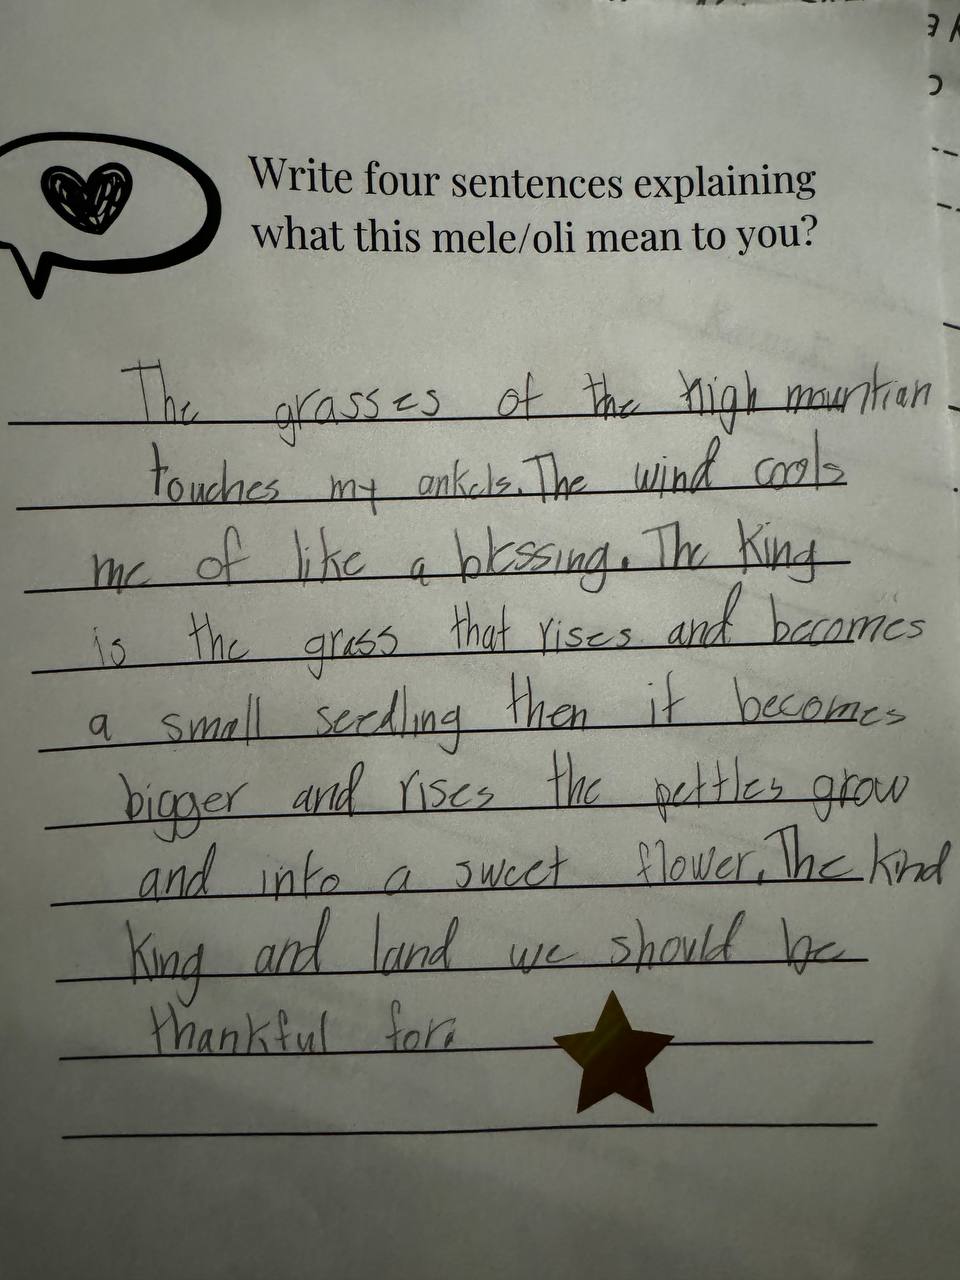 Write four sentences explaining
what this mele/oli mean to you?
The grasses of the high mountian
touches my ankels. The wind cools
me of like a blessing. The King
is the grass that rises and becomes
a small seedling then it becomes
bigger and rises the pettles grow
and into a sweet flower. The kind
King and land we should be
thankful for.